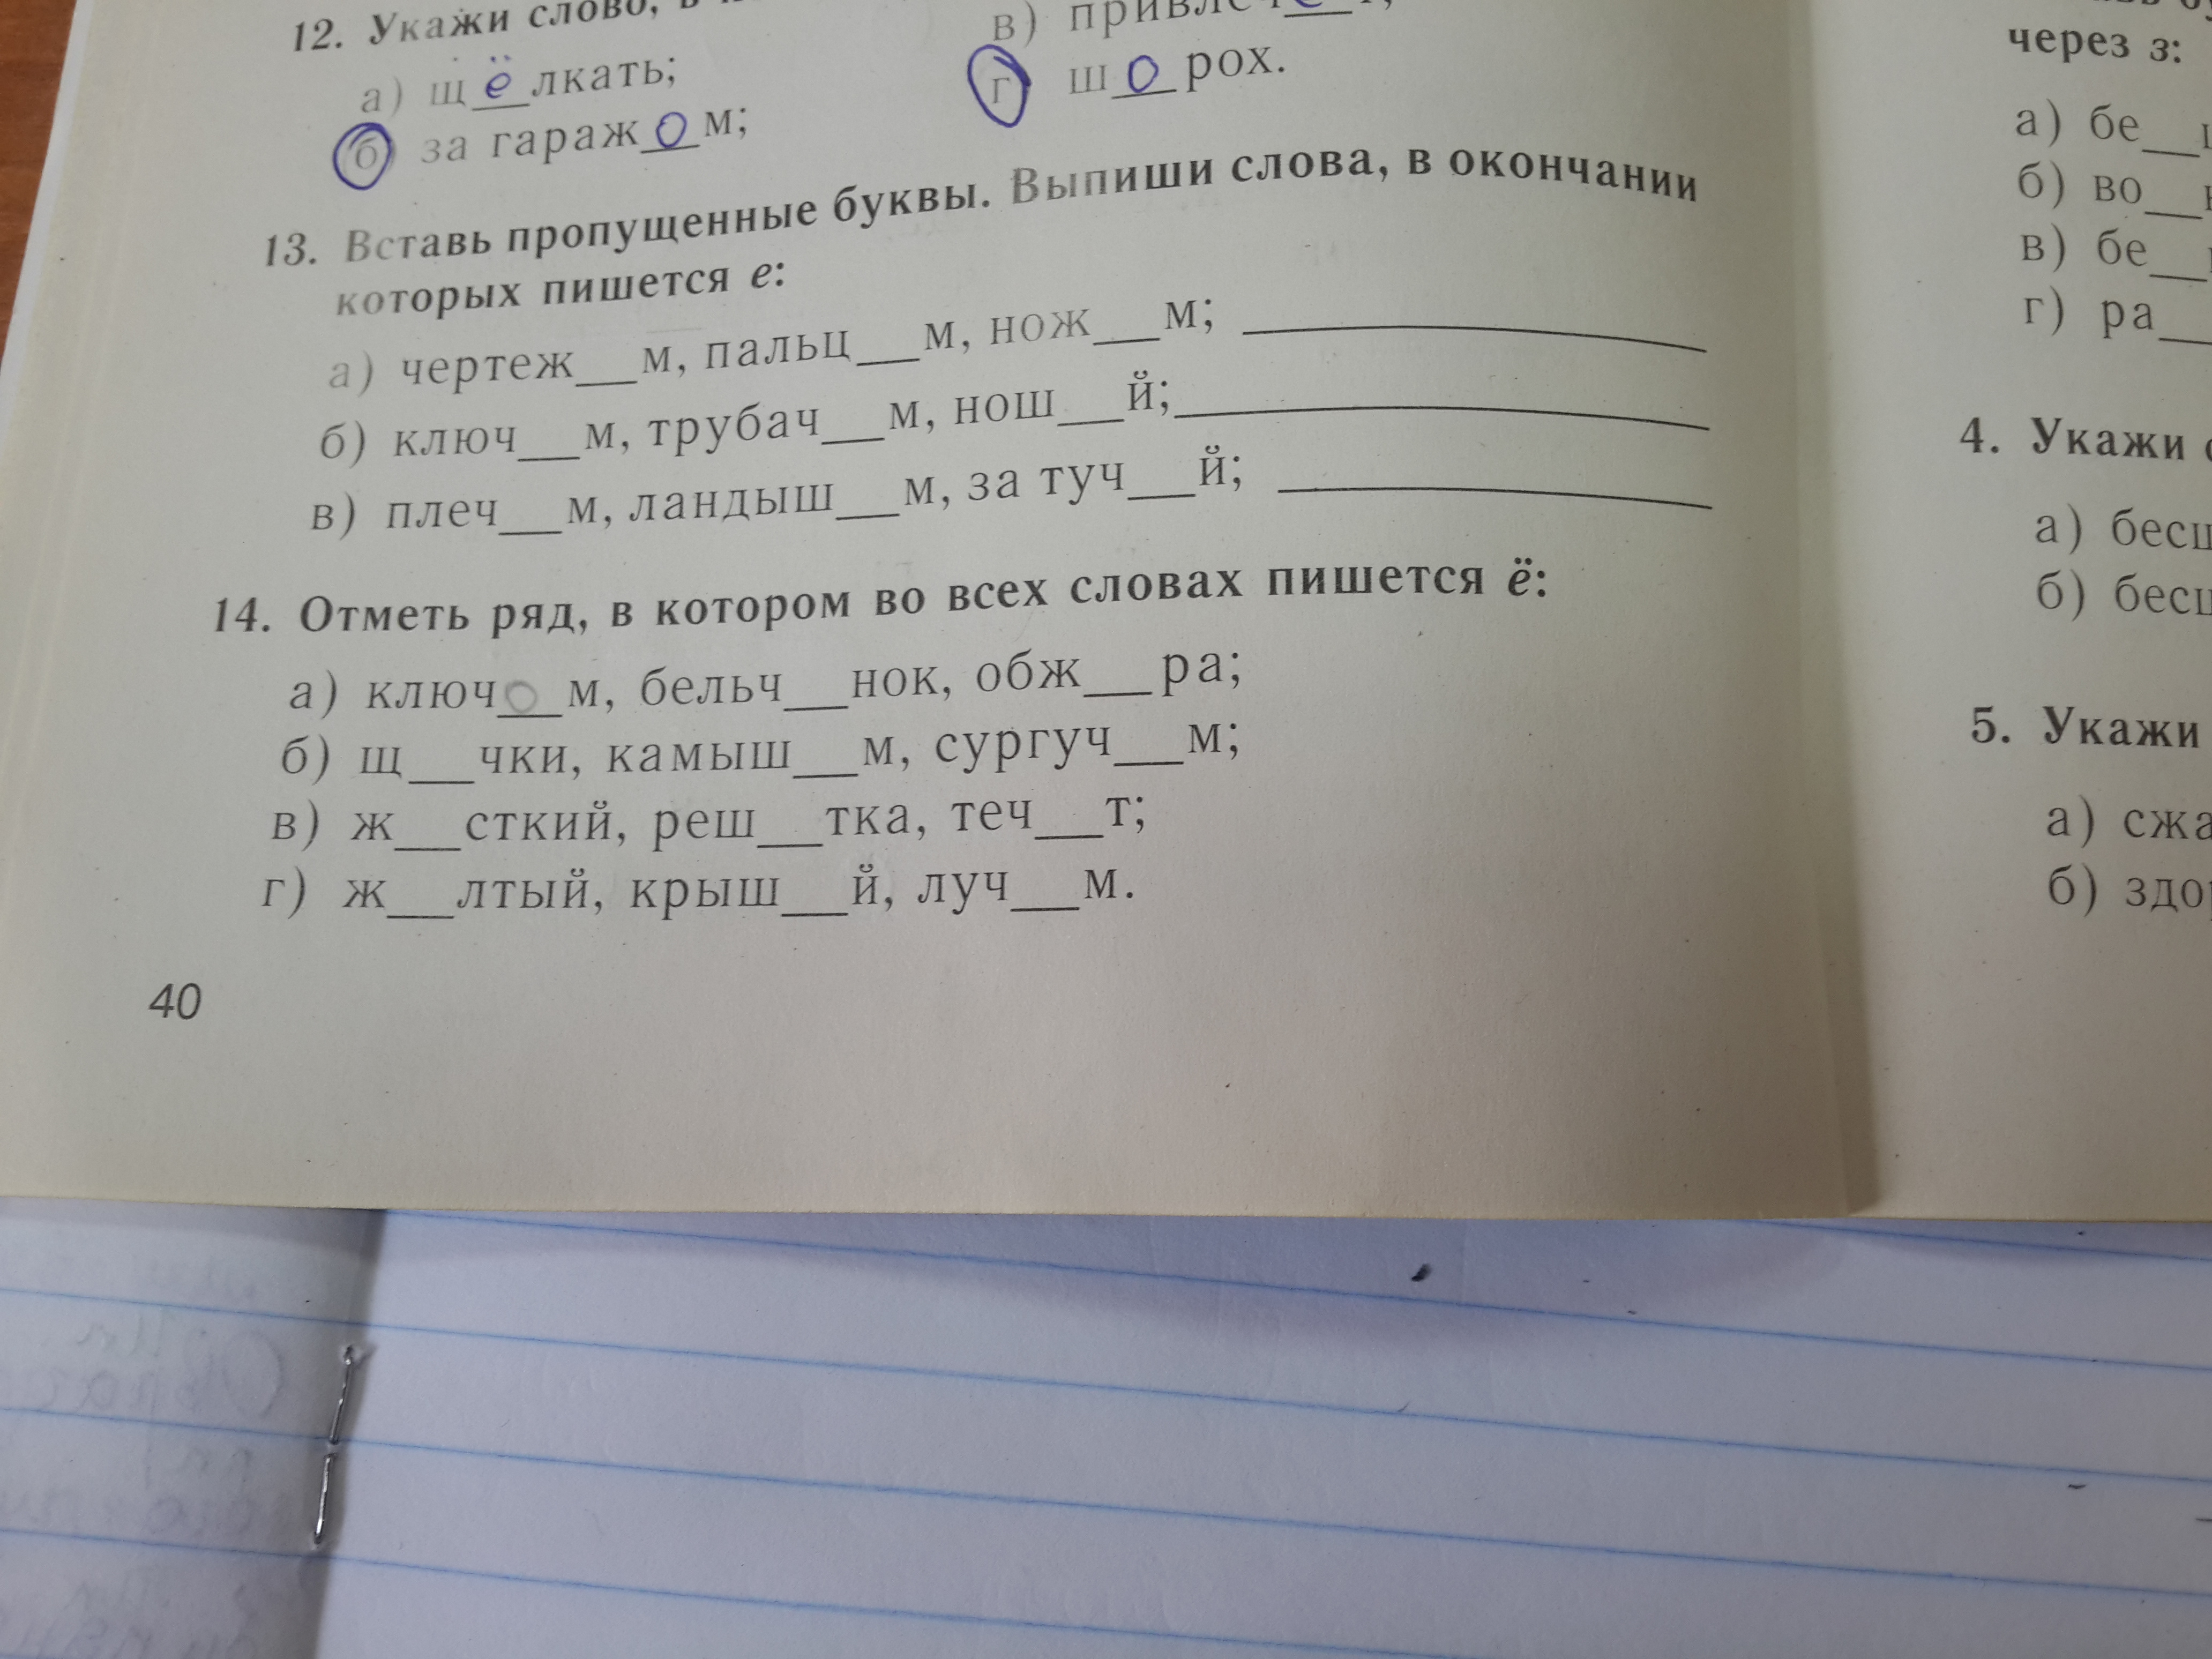 12. Укажи слово,
а) щ ё лкать;
б) за гараж о м;
в)
г) ш о рох.
13. Вставь пропущенные буквы. Выпиши слова, в окончании
которых пишется е:
а) чертеж__м, пальц__м, нож__м; ____
б) ключ__м, трубач__м, нош__й; ____
в) плеч__м, ландыш__м, за туч__й; ____
14. Отметь ряд, в котором во всех словах пишется ё:
а) ключ о м, бельч__нок, обж__ра;
б) щ__чки, камыш__м, сургуч__м;
в) ж__сткий, реш__тка, теч__т;
г) ж__лтый, крыш__й, луч__м.
40
через з:
а) бе__
б) во__
в) бе__
г) ра__
4. Укажи
а) бесц
б) бесц
5. Укажи
а) сжа
б) здо